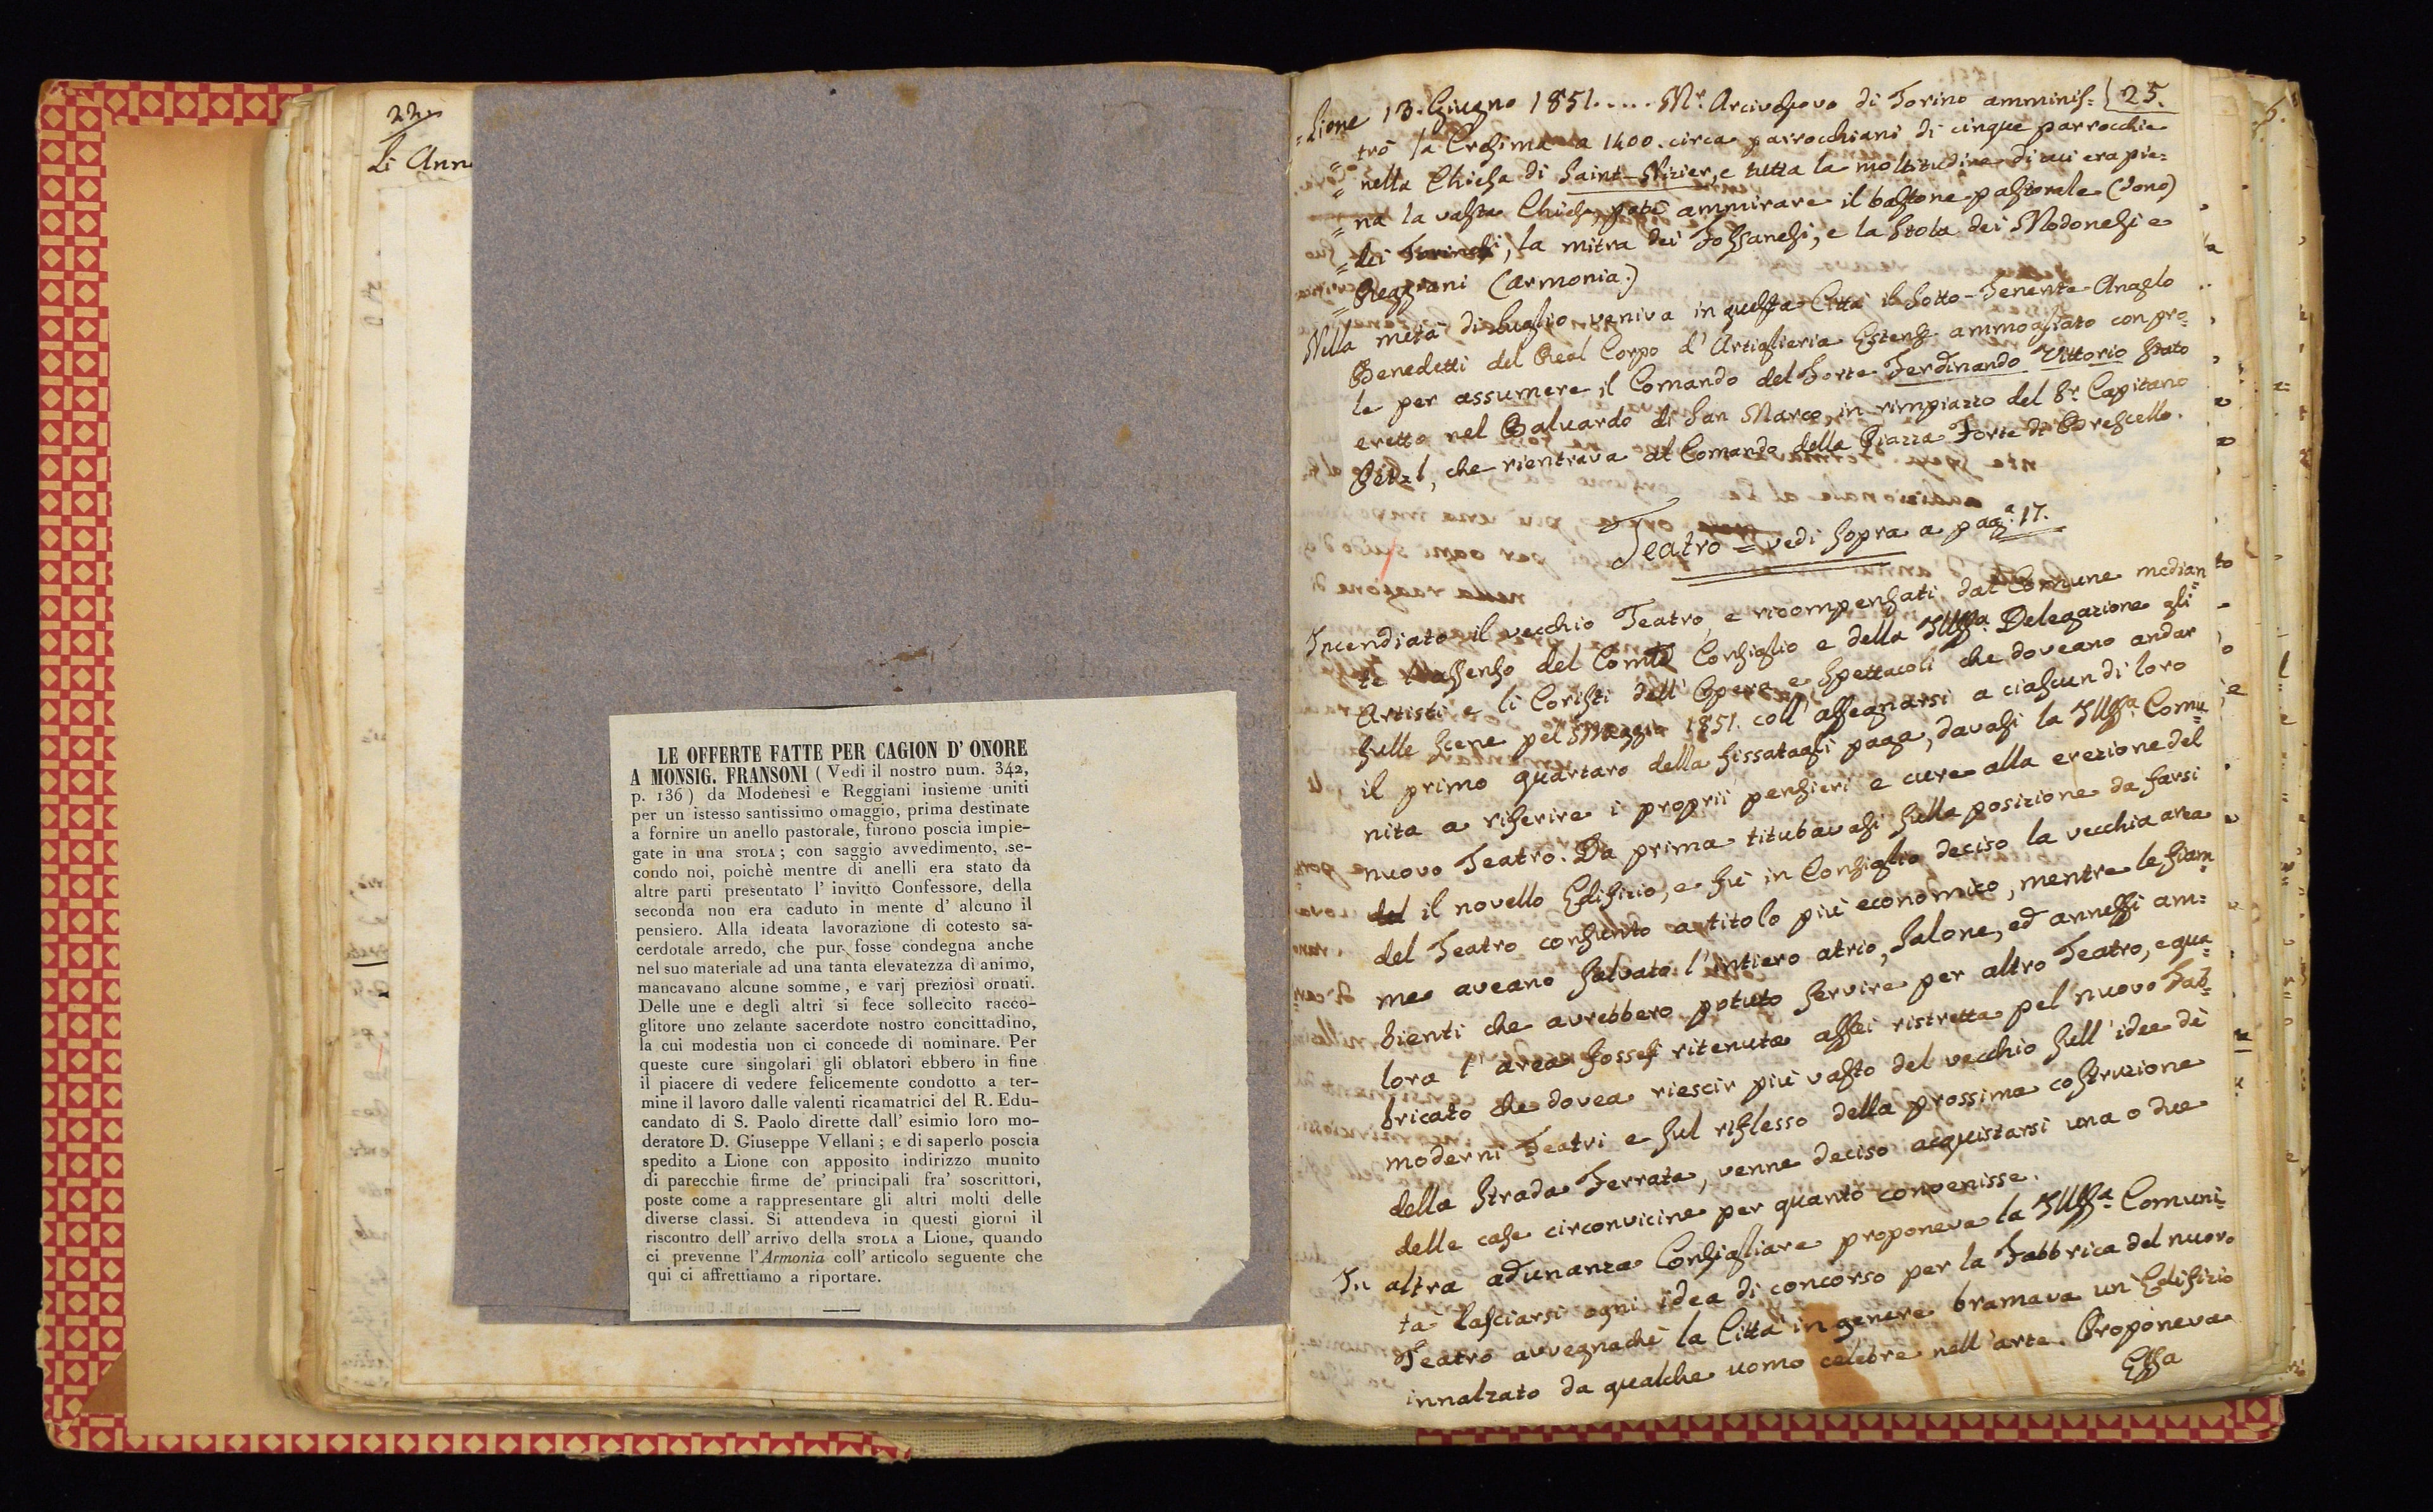 22.
Li Ann
LE OFFERTE FATTE PER CAGION D' ONORE
A MONSIG. FRANSONI ( Vedi il nostro num. 342,
p. 136 ) da Modenesi e Reggiani insieme uniti
per un istesso santissimo omaggio, prima destinate
a fornire un anello pastorale, furono poscia impie-
gate in una STOLA ; con saggio avvedimento, se-
condo noi, poichè mentre di anelli era stato da
altre parti presentato l' invitto Confessore, della
seconda non era caduto in mente d' alcuno il
pensiero. Alla ideata lavorazione di cotesto sa-
cerdotale arredo, che pur fosse condegna anche
nel suo materiale ad una tanta elevatezza di animo,
mancavano alcune somme, e varj preziosi ornati.
Delle une e degli altri si fece sollecito racco-
glitore uno zelante sacerdote nostro concittadino,
la cui modestia non ci concede di nominare. Per
queste cure singolari gli oblatori ebbero in fine
il piacere di vedere felicemente condotto a ter-
mine il lavoro dalle valenti ricamatrici del R. Edu-
candato di S. Paolo dirette dall' esimio loro mo-
deratore D. Giuseppe Vellani ; e di saperlo poscia
spedito a Lione con apposito indirizzo munito
di parecchie firme de' principali fra' soscrittori,
poste come a rappresentare gli altri molti delle
diverse classi. Si attendeva in questi giorni il
riscontro dell' arrivo della STOLA a Lione, quando
ci prevenne l' Armonia coll' articolo seguente che
qui ci affrettiamo a riportare.
25.
= Lione 13. Giugno 1851. .... Mr. Arcivescovo di Torino amminis=
= trò la Cresima a 1400. circa parrocchiani di cinque parrocchie
= nella Chiesa di Saint-Nizier, e tutta la moltitudine di cui era pie=
= na la vasta Chiesa, potè ammirare il bastone pastorale (dono)
= dei Torinesi, la mitra dei Fossanesi, e la Stola dei Modonesi e
= Reggiani (Armonia.)
Nella metà di Luglio veniva in questa Città il Sotto-Tenente Angelo
Benedetti del Real Corpo d' Artiglieria Estense ammogliato con pro=
le per assumere il Comando del Forte Ferdinando Vittorio stato
eretto nel Baluardo di San Marco in rimpiazzo del Sr. Capitano
che rientrava al Comando della Piazza Forte di Brescello.
Teatro = vedi sopra a paga. 17.
Incendiato il vecchio Teatro, e ricompensati dal Comune median=
te l'assenso del Comte Consiglio e della Illma. Delegazione gli
Artisti e li Coristi dell' Opera e Spettacoli che doveano andar
sulle scene pel Maggio 1851. coll' assegnarsi a ciascun di loro
il primo quartaro della fissatagli paga, davasi la Illma. Comu=
nita a riferire i proprii pensieri e cure alla erezione del
nuovo Teatro. Da prima titubavasi sulla posizione da farsi
il novello Edifizio, e fù in Consiglio deciso la vecchia area
del Teatro consunto a titolo più economico, mentre le fiam=
me aveano salvato l' intiero atrio, Salone, ed annessi am=
bienti che avrebbero potuto servire per altro Teatro, e qua=
lora l' area fosse ritenuta assai ristretta pel nuovo Fab=
bricato che dovea riescir più vasto del vecchio sull' idee dei
moderni Teatri e sul riflesso della prossima costruzione
della Strada Ferrata, venne deciso acquistarsi una o due
delle case circonvicine per quanto convenisse.
In altra adunanza Consigliare proponeva la Illma. Comuni=
ta lasciarsi ogni idea di concorso per la Fabbrica del nuovo
Teatro avvegnachè la Città in genere bramava un' Edifizio
innalzato da qualche uomo celebre nell' arte. Proponeva
Essa